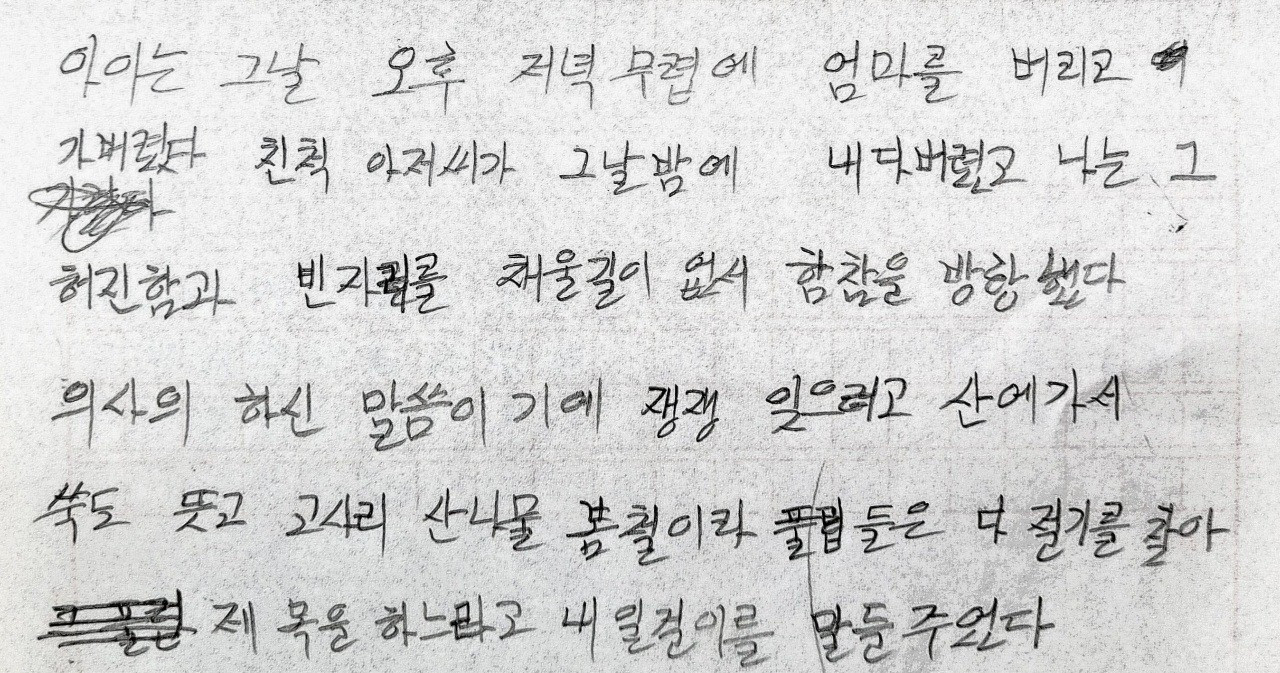 아아는 그날 오후 저녁 무렵에 엄마를 버리고
가버렸다 친척 아저씨가 그날밤에 내다버렸고 나는 그
허진함과 빈자리를 채울길이 없서 함참을 방황했다
의사의 하신 말씀이기에 쟁쟁 잊으려고 산에가서
쑥도 뜻고 고사리 산나물 봄철이라 풀잎들은 다 절기를 찾아
제 목을 하느라고 내 일걸이를 말둘주었다